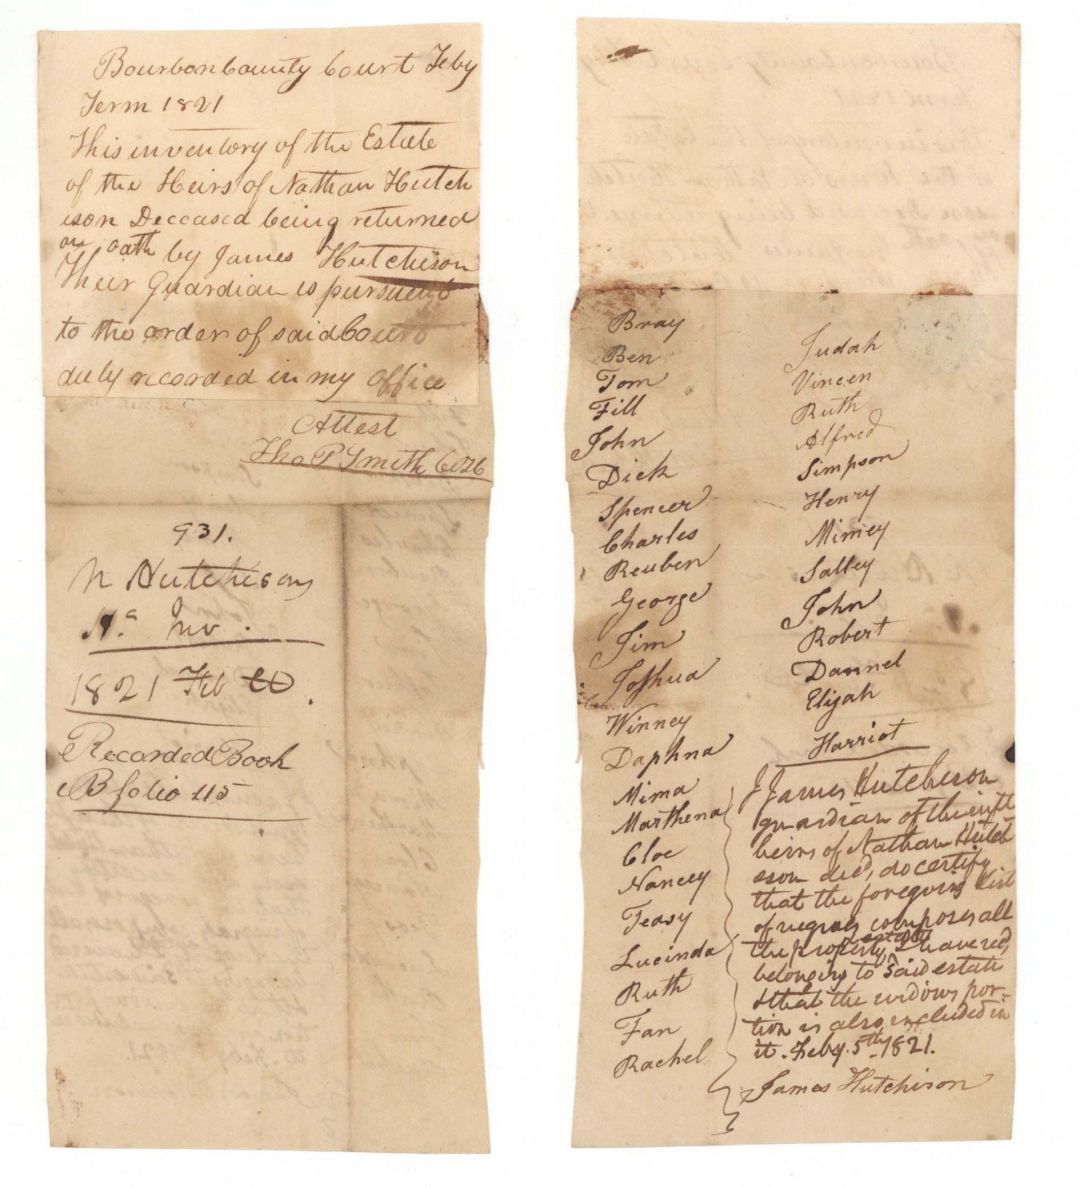 Bourbon County Court Feby
Term 1821
This inventory of the Estate
of the Heirs of Nathan Hutch
eson Deceased being returned
on oath by James Hutcheson
Their Guardian is pursuant
to the order of said Court
duly recorded in my office
Attest
Tho P Smith
931.
N Hutchesons
Hs Inv.
1821 Feb
Recorded Book
B folio 115
Bray
Ben
Tom
Fill
John
Dick
Spencer
Charles
Reuben
George
Jim
Joshua
Winney
Daphna
Mima
Marthena
Cloe
Nancey
Teasy
Lucinda
Ruth
Fan
Rachel
Judah
Vincen
Ruth
Alfred
Simpson
Henry
Mimey
Salley
John
Robert
Dannel
Elijah
Harriot
I James Hutcheson
guardian of the inft
heirs of Nathan Hutch
eson decd, do certify
that the foregoing list
of negroes composes all
the property estate I have recd
belonging to said estate
& that the widows por-
tion is also included in
it. Feby. 5th 1821.
James Hutchison